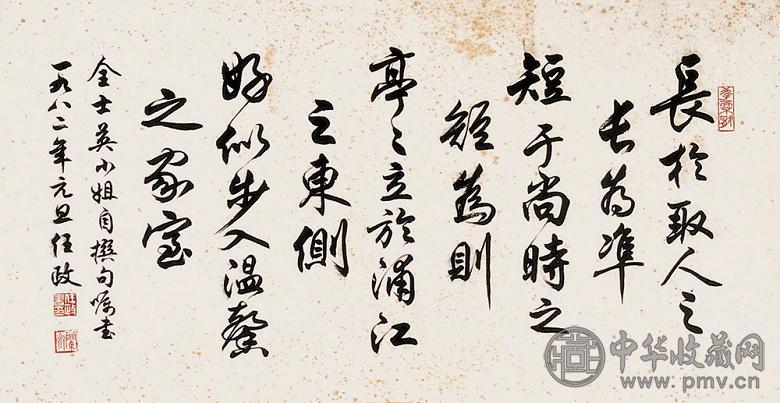 長於取人之
长為準
短于尚時之
短為則
亭〻立於浦江
之東側
好似步入溫馨
之家室
金士英小姐自撰句嘱书
一九八二年元旦任政
中华收藏网
www.pmv.cn